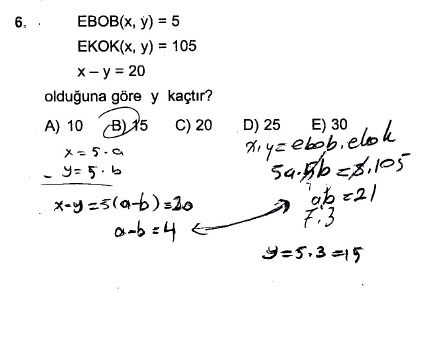 6. EBOB(x, y) = 5
EKOK(x, y) = 105
x – y = 20
olduğuna göre y kaçtır?
A) 10 B) 15 C) 20 D) 25 E) 30
x = 5 · a
- y = 5 · b
x-y = 5(a-b) = 20
a-b = 4
x.y = ebob.ekok
5a.5b = 5.105
ab = 21
7.3
y = 5.3 = 15